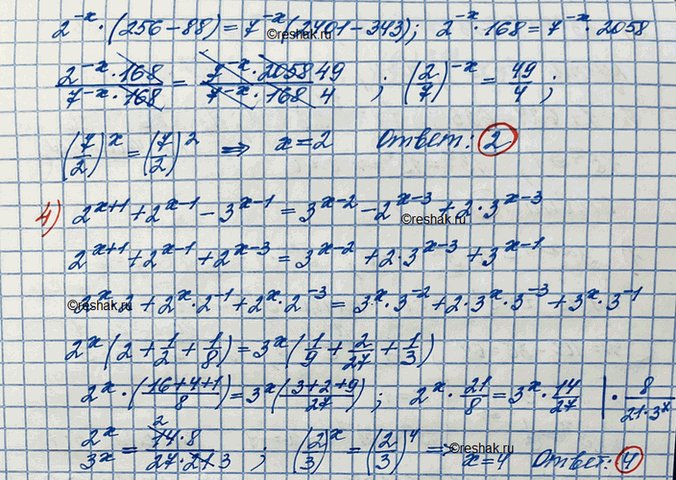 2^{-x}·(256-88)=7^{-x}(2401-343); 2^{-x}·168=7^{-x}·2058
©reshak.ru
\frac{2^{-x}·168}{7^{-x}·168} = \frac{7^{-x}·2058 49}{7^{-x}·168 4} ; (\frac{2}{7})^{-x} = \frac{49}{4};
(\frac{7}{2})^x = (\frac{7}{2})^2 ⇒ x=2 Ответ: 2
4) 2^{x+1}+2^{x-1}-3^{x-1}=3^{x-2}-2^{x-3}+2·3^{x-3}
©reshak.ru
2^{x+1}+2^{x-1}+2^{x-3}=3^{x-2}+2·3^{x-3}+3^{x-1}
2^x·2+2^x·2^{-1}+2^x·2^{-3}=3^x·3^{-2}+2·3^x·3^{-3}+3^x·3^{-1}
©reshak.ru
2^x(2+\frac{1}{2}+\frac{1}{8})=3^x(\frac{1}{9}+\frac{2}{27}+\frac{1}{3})
2^x·(\frac{16+4+1}{8})=3^x(\frac{3+2+9}{27}); 2^x·\frac{21}{8}=3^x·\frac{14}{27} |·\frac{8}{21·3^x}
\frac{2^x}{3^x} = \frac{2 14·8}{27·21 3} ; (\frac{2}{3})^x=(\frac{2}{3})^4 ⇒ x=4 Ответ: 4
©reshak.ru